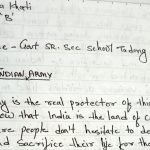 a Khati
'B'
e - Govt SR. Sec School - Tadong
INDIAN ARMY
y is the real protector of this
ow that India is the land of c
re people don't hesitate to de
d sacrifice their life for the